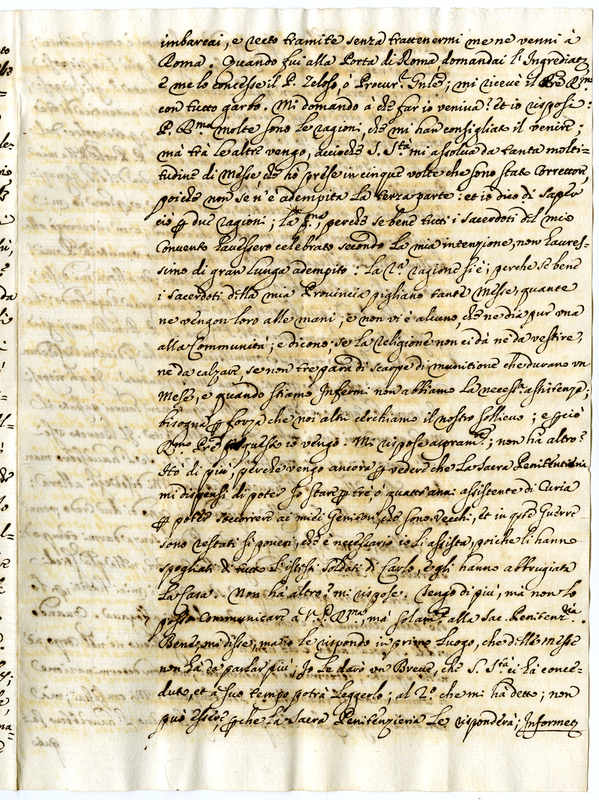 imbarcai, e recto tramite senza trattenermi me ne venni à
Roma. Quando fui alla Porta di Roma domandai l'Ingredietr,
E me lo concesse il P. Zeloso, ò Procur. Gnle; mi riceve il Pre Rmo
con tutto garbo. Mi domandò à che far io veniva? Et io risposi:
P. Rmo molte sono le ragioni, che mi han consigliato il venire;
mà trà le altre vengo, acciòche S. Stà mi assolva da tanta molti=
tudine di Messe che hò prese in cinque volte che sono stato Correttore,
poiche non se n'è adempita la terza parte: et io dico di saperlo
ciò p due ragioni; La pma, perche se bene tutti i Sacerdoti del mio
Convento l'avessero celebrato secondo la mia intenzione, non l'avres=
simo di gran lunga adempito: La 2a ragione si è; perche se bene
i Sacerdoti della mia Provincia pigliano tante Messe, quante
ne vengon loro alle mani; e non vi è alcuno, che ne dia pur una
alla Communità; e dicono; se la Religione non ci dà nè da vestire,
nè da calzare, se non tre para di scarpe di munitione che durano un
Mese, e quando stiamo Infermi non abbiamo la necessa. assistenza;
bisogna p forza che noi altri cerchiamo il nostro sollievo; e p ciò
Rmo Pre p questo io vengo. Mi rispose; non hà altro?
Hò di più; perche vengo ancora p vedere che La Sacra Penitentieria
mi dispensi di poter Io stare p tre ò quattr'anni assistente di Curia
p poter soccorrere ai miei Genitori, che sono vecchi, et in queste Guerre
sono restati sì poveri, che è necessario io li assista, poiche li hanno
spogliati di tutto l'istessi Soldati di Carlo, e gli hanno abbrugiata
la Casa. Non hà altro? mi rispose. Tengo di più, mà non lo
posso communicare à V. P. Rma, mà solamte alla Sac. Penitenzria
Bene, mi disse, mà io le rispondo in primo luogo, che delle Messe
non hà da parlar più; Io le darò un Breve, che S. Stà ci hà conce=
duto, et à suo tempo potrà leggerlo; al 2o che mi hà detto; non
può essere, p che la Sacra Penitenzieria le risponderà; Informez